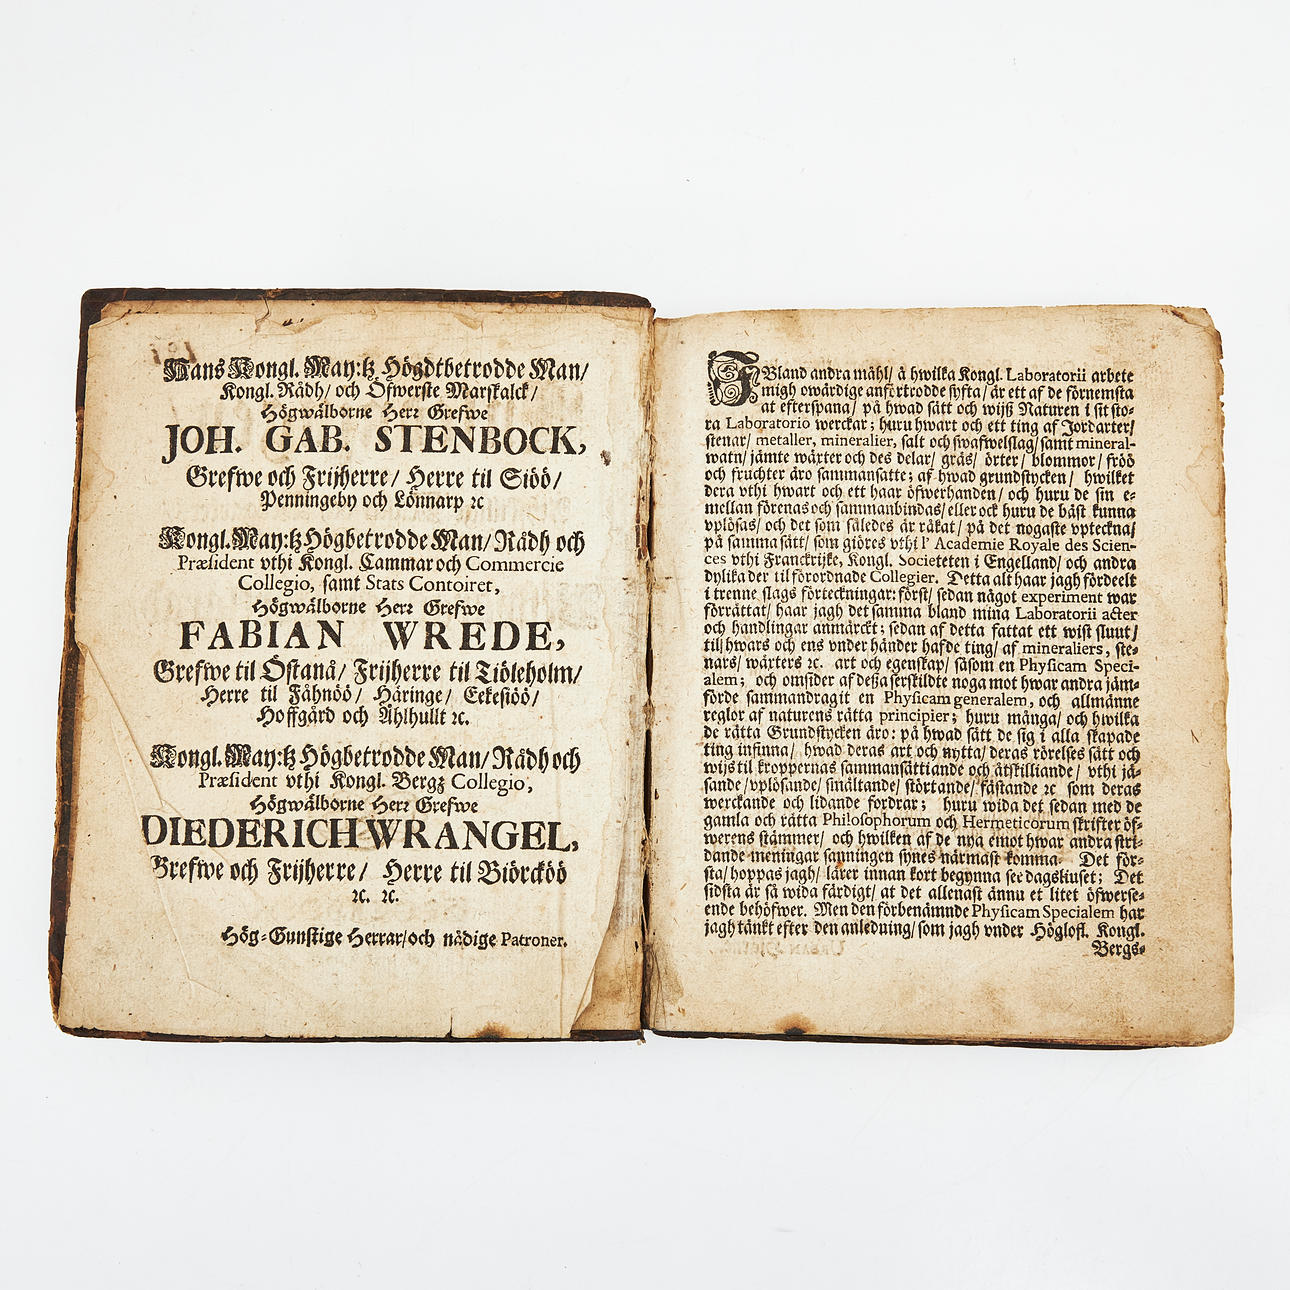 Hans Kongl. May:tz Högdtbetrodde Man/
Kongl. Rådh/ och Öfwerste Marskalck/
Högwälborne Herr Grefwe
JOH. GAB. STENBOCK,
Grefwe och Frijherre/ Herre til Siöö/
Penningeby och Lönnarp ꝛc
Kongl. May:tz Högbetrodde Man/ Rådh och
Præsident vthi Kongl. Cammar och Commercie
Collegio, samt Stats Contoiret,
Högwälborne Herr Grefwe
FABIAN WREDE,
Grefwe til Östanå/ Frijherre til Tiöleholm/
Herre til Fåhnöö/ Häringe/ Eekesiöö/
Hoffgård och Åhlhullt ꝛc.
Kongl. May:tz Högbetrodde Man/ Rådh och
Præsident vthi Kongl. Bergz Collegio,
Högwälborne Herr Grefwe
DIEDERICH WRANGEL,
Grefwe och Frijherre/ Herre til Biörcköö
ꝛc. ꝛc.
Hög-Gunstige Herrar/och nådige Patroner.
IBland andra måhl/ å hwilka Kongl. Laboratorii arbete
migh owärdige anförtrodde syfta/ är ett af de förnemsta
at efterspana/ på hwad sätt och wijß Naturen i sit sto-
ra Laboratorio werckar; huru hwart och ett ting af Jordarter/
stenar/ metaller, mineralier, salt och swafwelslag/ samt mineral-
watn/ jämte wäxter och des delar/ gräs/ örter/ blommor/ fröö
och fruchter äro sammansatte; af hwad grundstycken/ hwilket
dera vthi hwart och ett haar öfwerhanden/ och huru de sin e-
mellan förenas och sammanbindas/ eller ock huru de bäst kunna
vplösas/ och det som således är råkat/ på det nogaste vpteckna/
på samma sätt/ som giöres vthi l' Academie Royale des Scien-
ces vthi Franckrijke, Kongl. Societeten i Engelland/ och andra
dylika der til förordnade Collegier. Detta alt haar jagh fördeelt
i trenne slags förteckningar: först/ sedan något experiment war
förrättat/ haar jagh det samma bland mina Laboratorii acter
och handlingar anmärckt; sedan af detta fattat ett wist sluut/
till hwars och ens vnder händer hafde ting/ af mineraliers, ste-
nars/ wäxters ꝛc. art och egenskap/ såsom en Physicam Speci-
alem; och omsider af deßa serskildte noga mot hwar andra jäm-
förde sammandragit en Physicam generalem, och allmänne
reglor af naturens rätta principier; huru många/ och hwilka
de rätta Grundstycken äro: på hwad sätt de sig i alla skapade
ting infinna/ hwad deras art och nytta/ deras rörelses sätt och
wijs til kroppernas sammansättiande och åtskilliande/ vthi jä-
sande/vplösande/ smältande/ störtande/ fästande ꝛc som deras
werckande och lidande fordrar; huru wida det sedan med de
gamla och rätta Philosophorum och Hermeticorum skrifter öf-
werens stämmer/ och hwilken af de nya emot hwar andra stri-
dande meningar sanningen synes närmast komma. Det för-
sta/ hoppas jagh/ lärer innan kort begynna see dagsliuset; Det
sidsta är så wida färdigt/ at det allenast ännu et litet öfwerse-
ende behöfwer. Men den förbenämnde Physicam Specialem har
jagh tänkt efter den anledning/ som jagh vnder Höglofl. Kongl.
Bergs-